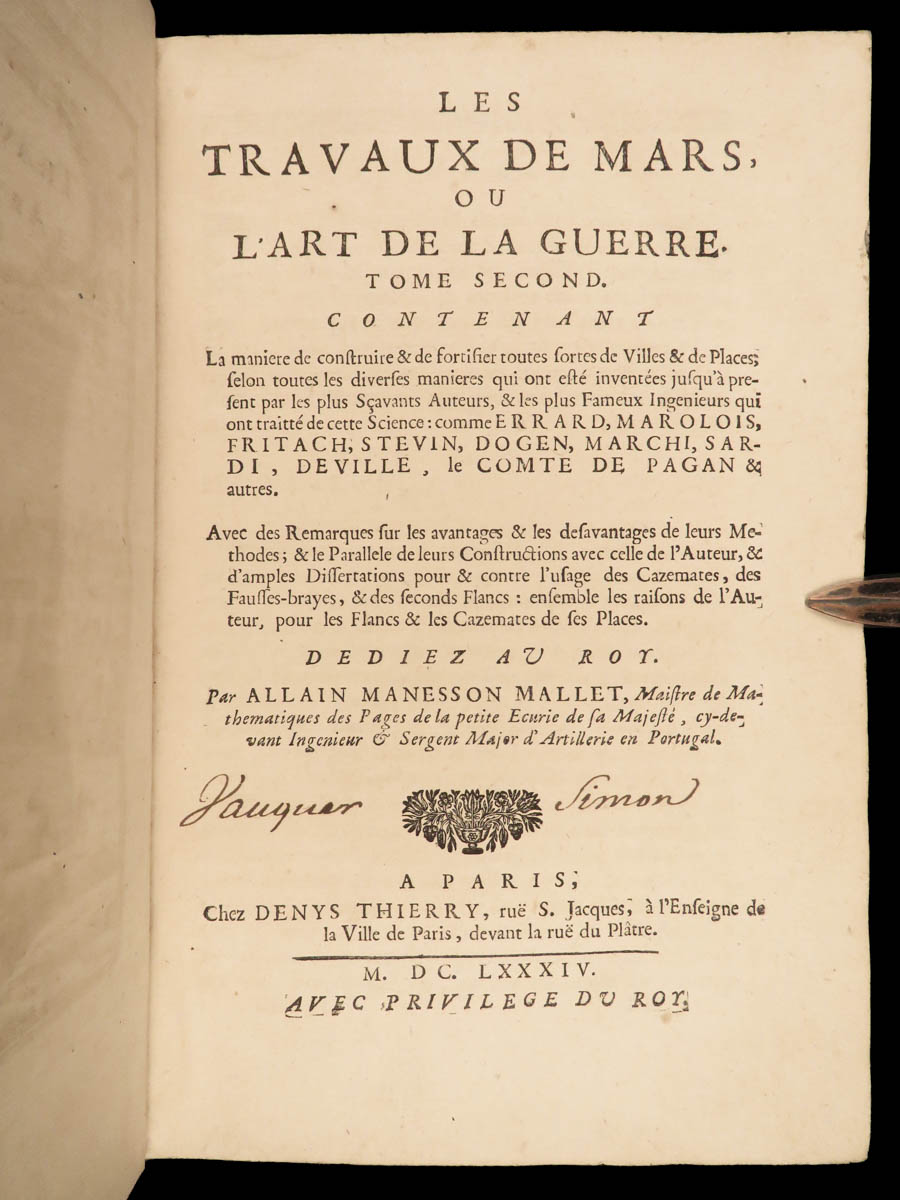 LES
TRAVAUX DE MARS,
OU
L'ART DE LA GUERRE.
TOME SECOND.
CONTENANT
La maniere de conſtruire & de fortifier toutes ſortes de Villes & de Places;
ſelon toutes les diverſes manieres qui ont eſté inventées juſqu'à pre-
ſent par les plus Sçavants Auteurs, & les plus Fameux Ingenieurs qui
ont traitté de cette Science : comme ERRARD, MAROLOIS,
FRITACH, STEVIN, DOGEN, MARCHI, SAR-
DI, DEVILLE, le COMTE DE PAGAN &
autres.
Avec des Remarques ſur les avantages & les deſavantages de leurs Me-
thodes ; & le Parallele de leurs Conſtructions avec celle de l'Auteur, &
d'amples Diſſertations pour & contre l'uſage des Cazemates, des
Fauſſes-brayes, & des ſeconds Flancs : enſemble les raiſons de l'Au-
teur, pour les Flancs & les Cazemates de ſes Places.
DEDIEZ AU ROY.
Par ALLAIN MANESSON MALLET, Maiſtre de Ma-
thematiques des Pages de la petite Ecurie de ſa Majeſté, cy-de-
vant Ingenieur & Sergent Major d'Artillerie en Portugal.
Vauquer Simon
A PARIS,
Chez DENYS THIERRY, ruë S. Jacques, à l'Enſeigne de
la Ville de Paris, devant la ruë du Plâtre.
M. DC. LXXXIV.
AVEC PRIVILEGE DU ROY.